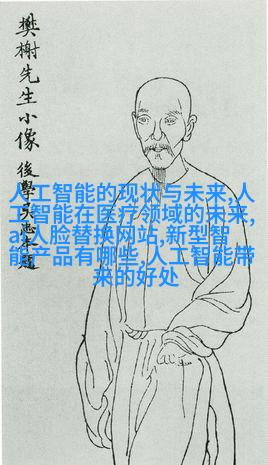 樊榭先生小像
後學吴題
人工智能的现状与未来,人
工智能在医疗领域的未来,
ai人脸替换网站,新型智
能产品有哪些,人工智能带
来的好处